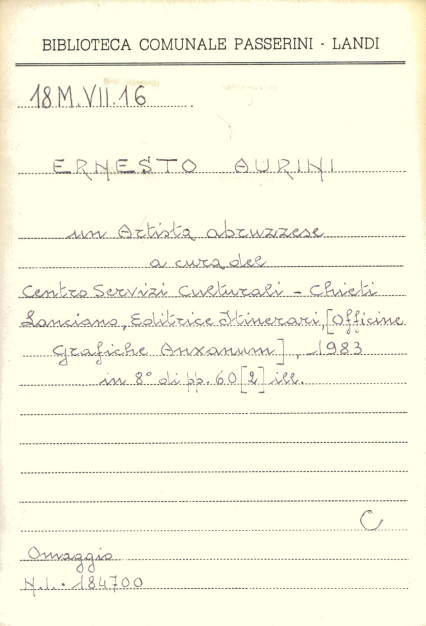 BIBLIOTECA COMUNALE PASSERINI - LANDI
18 M.VII.16
ERNESTO AURINI
un Artista abruzzese
a cura del
Centro Servizi Culturali - Chieti
Lanciano, Editrice Itinerari, [Officine
Grafiche Anxanum], 1983
in 8° di pp. 60 [2] ill.
C
Omaggio
N.I. 184700